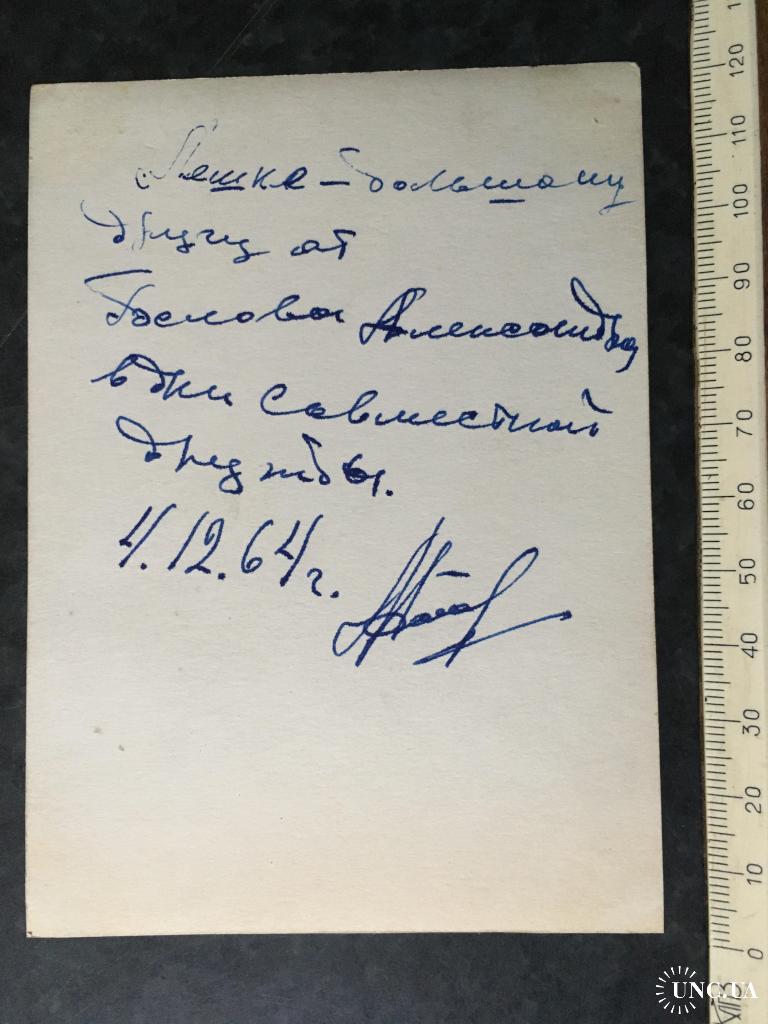 Лешке – большому
другу от
Послова Александра
в дни совместной
дружбы.
4.12.64 г.
120
110
100
90
80
70
60
50
40
30
20
10
0
UNC.UA